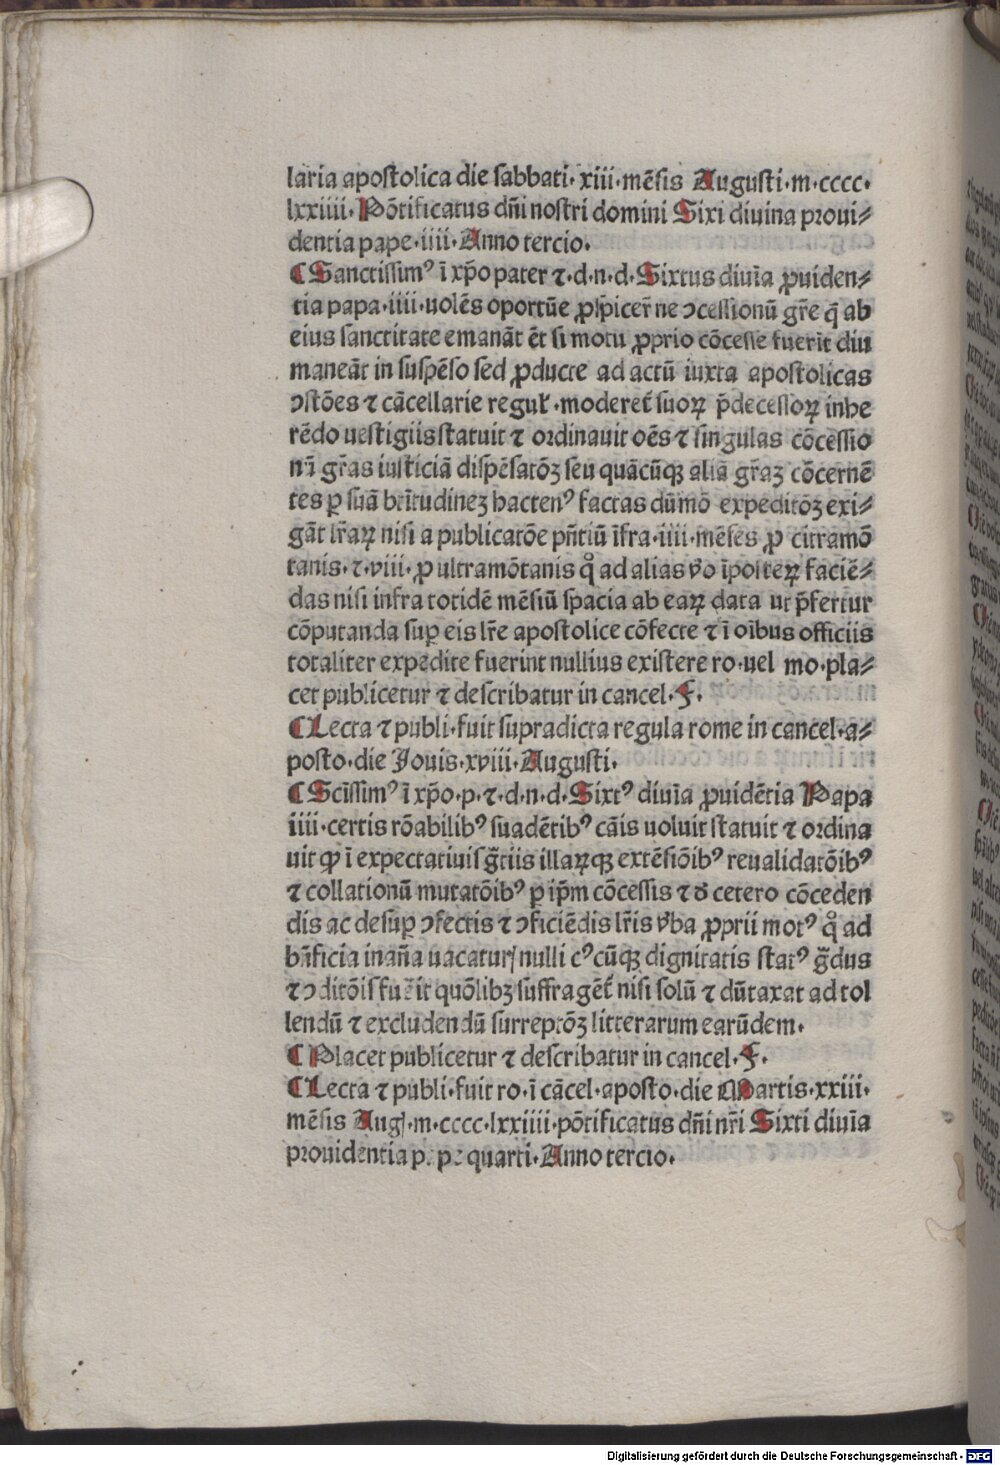 laria apostolica die sabbati· xiii·mēsis Augusti·m·cccc·
lxxiiii· Põtificatus dñi nostri domini Sixi diuina proui⸗
dentia pape·iiii·Anno tercio·
¶ Sanctissimꝰ ī xp̄o pater ⁊·d·n·d·Sixtus diuīa ꝓuiden⸗
tia papa·iiii·uolēs oportūe ꝓsp̄icer̄ ne ↄcessionū gr̄e q̄ ab
eius sanctitate emanāt ēt si motu ꝓprio cōcesse fuerīt diu
maneāt in suspēso sed ꝓducte ad actū iuxta apostolicas
ↄstōes ⁊ cācellarie regul̄·moderet̄ suoꝝ p̄decessoꝝ inhe
rēdo uestigiis statuit ⁊ ordinauit oēs ⁊ singulas cōcessio
nū gr̄as iusticiā dispēsatōꝫ seu quācūqꝫ aliā gr̄aꝫ cōcernē
tes ꝑ suā br̄itudineꝫ hactenꝰ factas dūmō expeditōꝫ exi⸗
gāt lr̄aꝝ nisi a publicatōe pn̄tiū īfra·iiii·mēses ꝓ citramō
tanis·⁊·viii·ꝓ ultramōtanis qͦ ad alias v̄o īposteꝝ faciē⸗
das nisi infra totidē mēsiū spacia ab eaꝝ data ut p̄fertur
cōputanda suꝑ eis lr̄e apostolice cōfecte ⁊ ī oībus officiis
totaliter expedite fuerint nullius existere ro·uel mo·pla⸗
cet publicetur ⁊ describatur in cancel·F·
¶ Lecta ⁊ publi·fuit supradicta regula rome in cancel·a⸗
posto·die Jouis·xviii·Augusti·
¶ Scīssimꝰ ī xp̄o·p·⁊·d·n·d·Sixtꝰ diuīa ꝓuidētia Papa
iiii·certis rōabilibꝰ suadētibꝰ cāis uoluit statuit ⁊ ordina
uit ꝙ ī expectatiuis gr̄tiis illaꝝqꝫ extēsiōibꝰ reualidatōibꝰ
⁊ collationū mutatōibꝰ ꝑ ip̄m cōcessis ⁊ d̄ cetero cōceden
dis ac desuꝑ ↄfectis ⁊ ↄficiēdis lr̄is v̄ba ꝓprii motꝰ qͦ ad
bn̄ficia inan̄a uacatur nulli cꝰcūqꝫ dignitatis statꝰ gͣdus
⁊ ↄditōis fuerit quōlibꝫ suffraget̄ nisi solū ⁊ dūtaxat ad tol
lendū ⁊ excludendū surreptōꝫ litterarum earūdem·
¶ Placet publicetur ⁊ describatur in cancel·F·
¶ Lecta ⁊ publi·fuit ro·ī cācel·aposto·die Martis·xxiii·
mēsis Augꝭ·m·cccc·lxxiiii·pōtificatus dñi nr̄i Sixti diuīa
prouidentia pape quarti·Anno tercio·
Digitalisierung gefördert durch die Deutsche Forschungsgemeinschaft - DFG